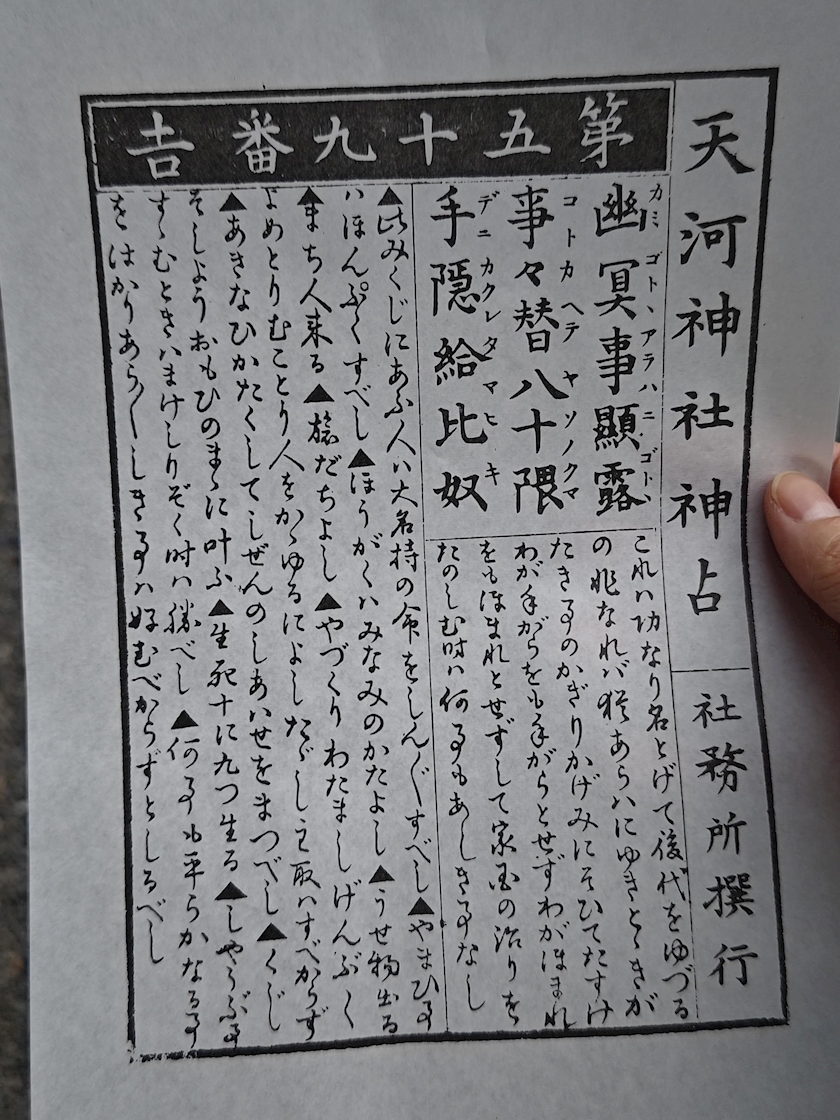 天河神社神占
社務所撰行
第五十九番吉
幽冥事顯露
カミゴトヽアラハニゴトヽ
事々替八十隈
コトカヘテヤソノクマ
手隠給比奴
デニカクレタマヒキ
これハ功なり名とげて後代をゆづる
の兆なれバ猶あらハにゆきとゝきが
たき事のかぎりかげみにそひてたすけ
わが手がらをも手がらとせずわがほまれ
をもほまれとせずして家国の治りを
たのしむ時ハ何事もあしき事なし
▲此みくじにあふ人ハ大名持の命をしん〴〵すべし▲やまひ事
ハほんぷくすべし▲ほうがくハみなみのかたよし▲うせ物出る
▲まち人来る▲旅だちよし▲やづくりわたましげんぶく
よめとりむことり人をかゝゆるによしたゞし主取ハすべからず
▲あきなひかたくしてしぜんのしあハせをまつべし▲くじ
そしようおもひのまゝに叶ふ▲生死十に九つ生る▲しやうぶ事
すゝむときハまけしりぞく時ハ勝べし▲何事も平らかなる事
をはかりあら〳〵しき事ハ好むべからずとしるべし